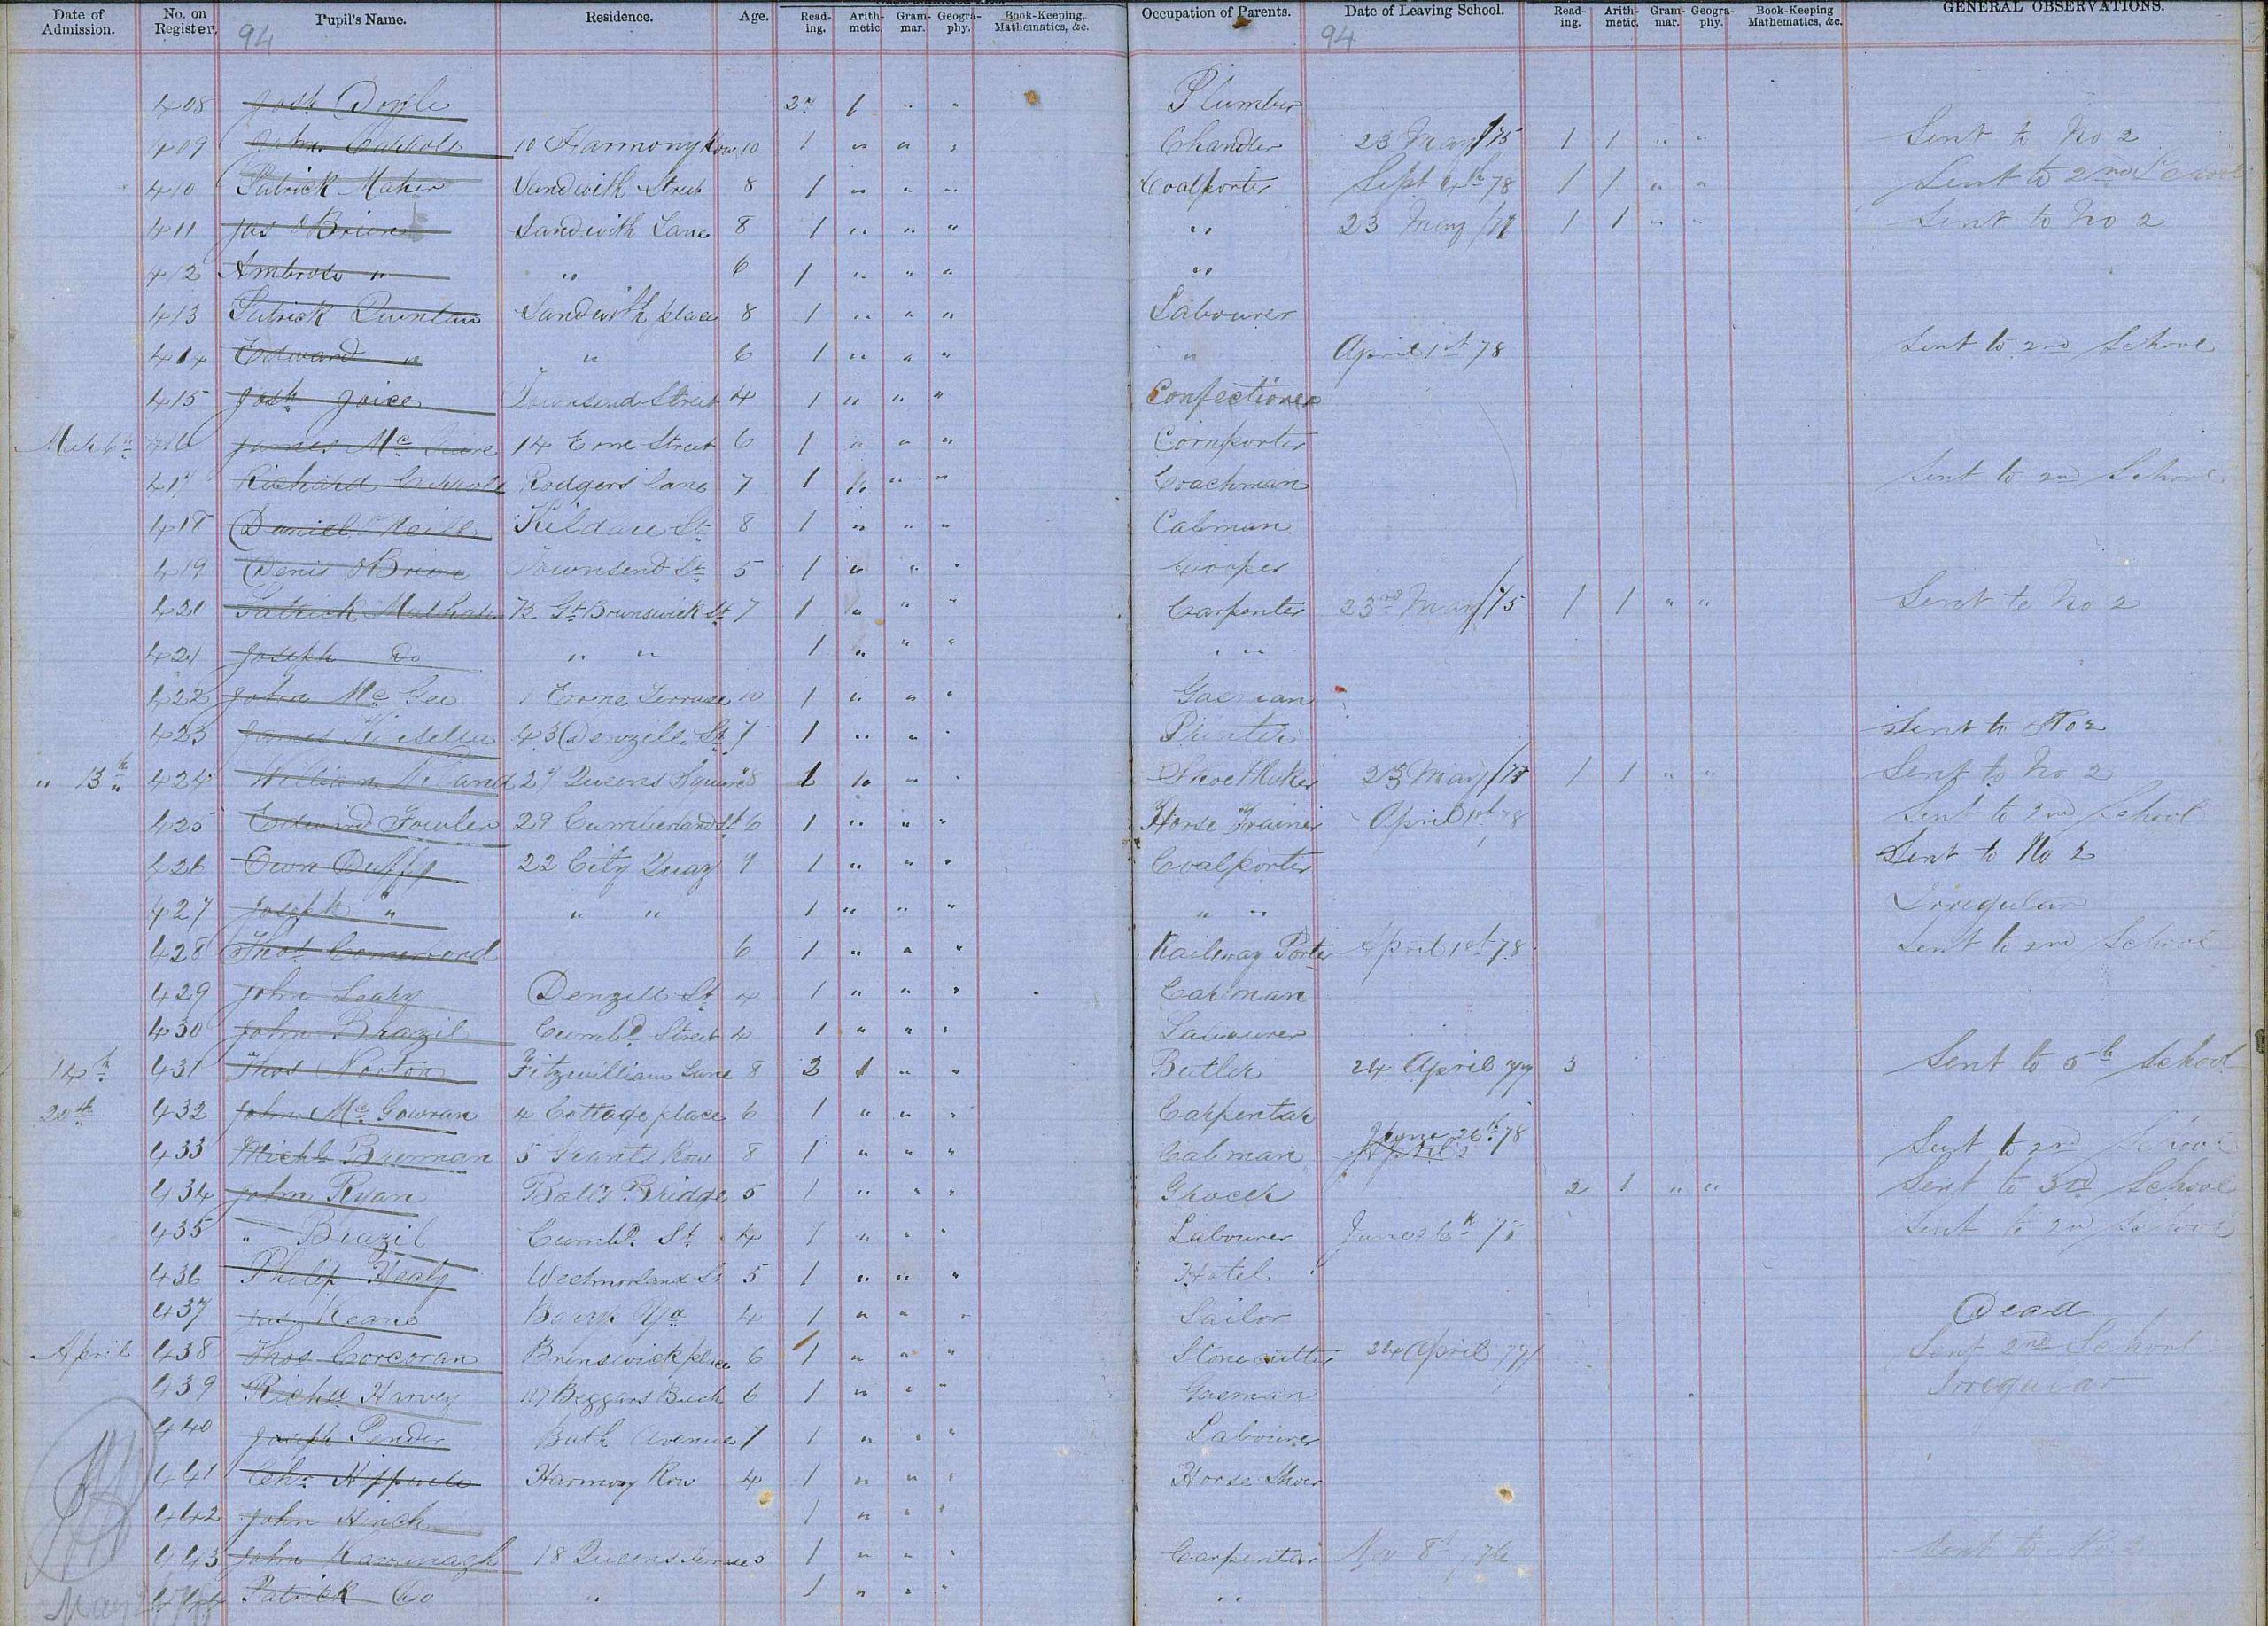 Date of Admission. No. on Register. Pupil's Name. Residence. Age. Read-ing. Arith-metic. Gram-mar. Geogra-phy. Book-Keeping, Mathematics, &c. Occupation of Parents. Date of Leaving School. Read-ing. Arith-metic. Gram-mar. Geogra-phy. Book-Keeping Mathematics, &c. GENERAL OBSERVATIONS.
94 94
408 Josh. Doyle 1 " " Plumber
409 John 10 Harmony Row 10 1 " " " Chandler 23 May /75 1 1 " " Sent to No 2
410 Patrick Maher Sandwith Street 8 1 " " " Coalporter Sept 78 1 1 " " Sent to 2nd School
411 Jas O'Brien Sandwith Lane 8 1 " " " " 23 May 1 1 " " Sent to No 2
412 Ambrose " " 6 1 " " " "
413 Patrick Quinlan Sandwith place 8 1 " " " Labourer
414 Edward " " 6 1 " " " " April 1st 78 Sent to 2nd School
415 Josh Joice Townsend Street 4 1 " " " Confectioner
416 James Mc 14 Erne Street 6 1 " " " Cornporter
417 Richard Rodgers Lane 7 1 " " " Coachman Sent to 2nd School
418 Daniel O'Neill Kildare St 8 1 " " " Cabman
419 Denis O'Brien Townsend St 5 1 " " " Cooper
420 Patrick 72 Gt Brunswick St 7 1 " " " Carpenter 23rd May /75 1 1 " " Sent to No 2
421 Joseph Do " " 1 " " " " "
422 John Mc Gee 1 Erne Terrace 10 1 " " " Gasman
423 James Kinsella 43 Denzille St 7 1 " " " Printer Sent to No 2
" 13th 424 William 27 Queens Square 8 1 " " " Shoe Maker 23 May 1 1 " " Sent to No 2
425 Edward Fowler 29 Cumberland St 6 1 " " " Horse Trainer April 1st 78 Sent to 2nd School
426 Owen Duffy 22 City Quay 9 1 " " " Coalporter Sent to No 2
427 Joseph " " " 1 " " " " " Irregular
428 Thos Comerford 6 1 " " " Railway Porter April 1st 78 Sent to 2nd School
429 John Leahy Denzill St 4 1 " " " Carman
430 John Brazil Cumbd Street 4 1 " " " Labourer
14th 431 Thos Norton Fitzwilliam Lane 8 3 1 " " Butler 24 April 77 3 Sent to 5th School
20th 432 John Mc Gowran 4 Cottage place 6 1 " " " Carpenter
433 Michl Brennan 5 Grants Row 8 1 " " " Cabman June 26th 78 Sent to 2nd School
434 John Ryan Balls Bridge 5 1 " " " Grocer 2 1 " " Sent to 3rd School
435 " Brazil Cumbd. St. 4 1 " " " Labourer Sent to 2nd School
436 Philip Healy Westmorland St 5 1 " " " Hotel.
437 Keane 4 1 " " " Sailor Dead
April 438 Thos Corcoran Brunswick place 6 1 " " " Stonecutter 24 April 77 Sent 2nd School
439 Richd Harvey Beggars Bush 6 1 " " " Gasman Irregular
440 Joseph Pender Bath Avenue 7 1 " " " Labourer
441 Chr. Harmony Row 4 1 " " " Horse Shoer
442 John Hinch 1 " " "
443 John Kavanagh 18 Queens Terrace 5 1 " " " Carpenter Nov 8th 76 Sent to No 2
444 Patrick Do " 1 " " " "